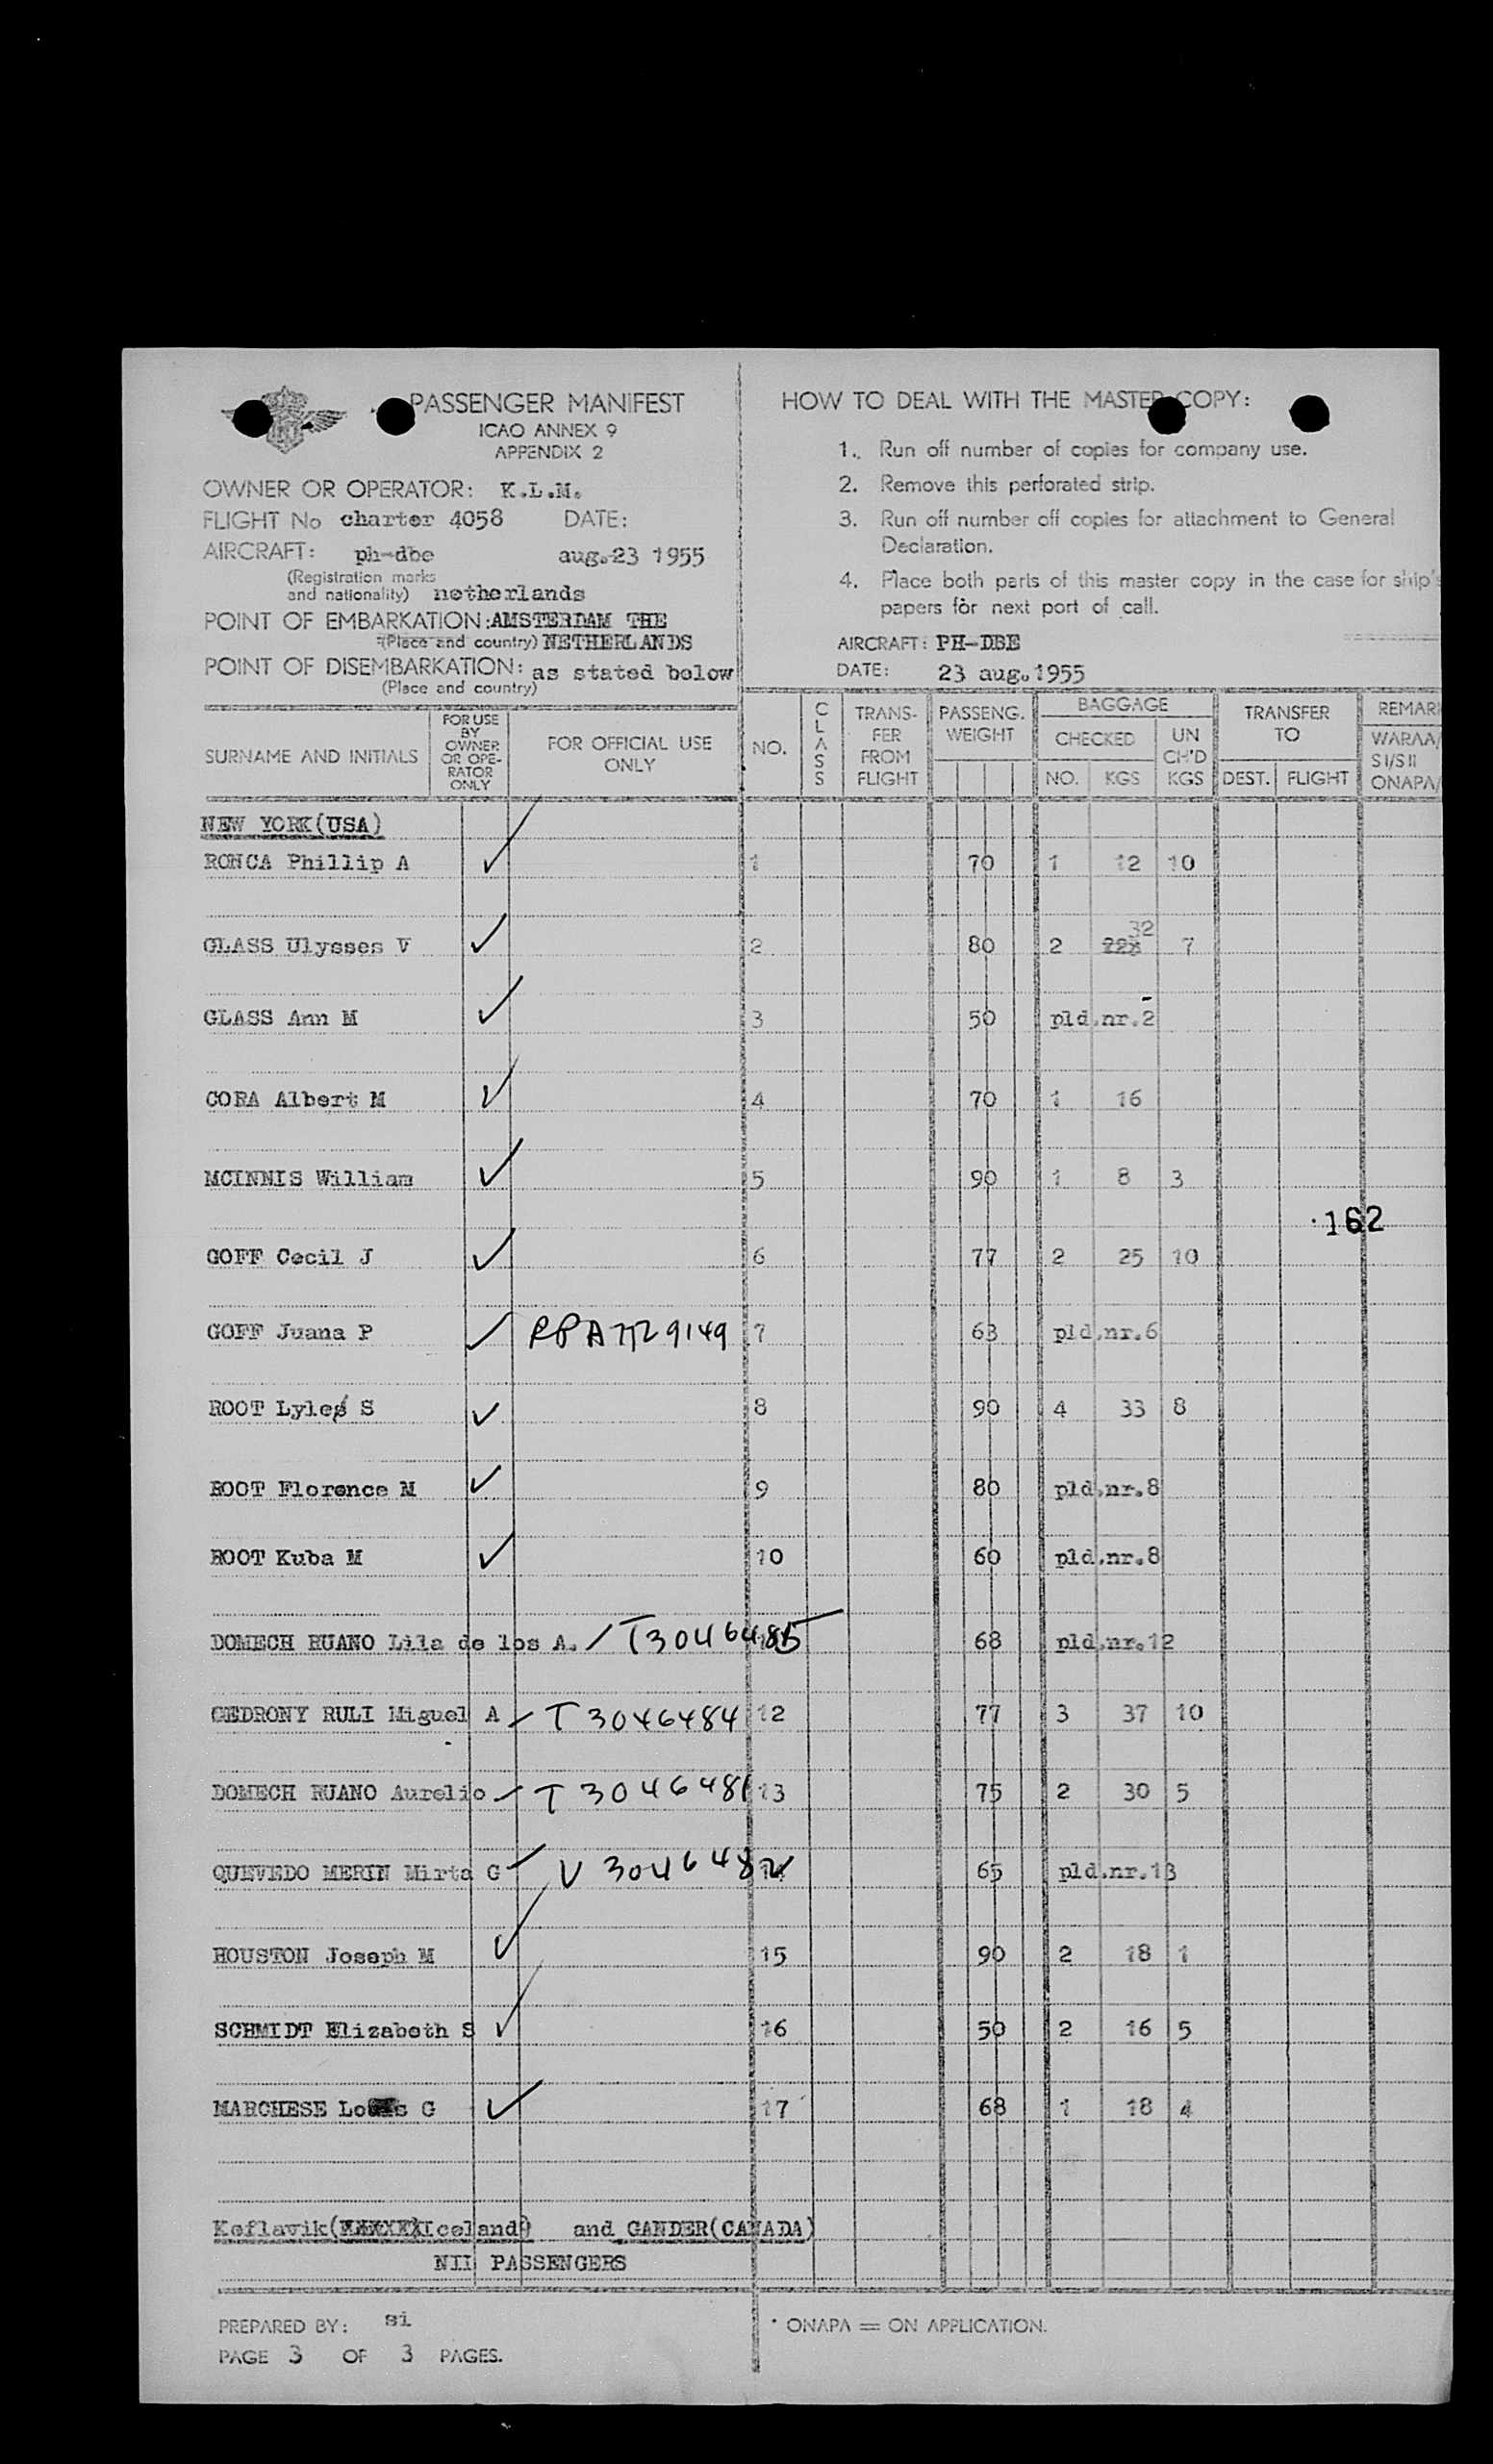 PASSENGER MANIFEST
ICAO ANNEX 9
APPENDIX 2
OWNER OR OPERATOR: K.L.M.
FLIGHT No charter 4058 DATE:
AIRCRAFT: ph-dbe aug.-23 1955
(Registration marks
and nationality) netherlands
POINT OF EMBARKATION: AMSTERDAM THE
(Place and country) NETHERLANDS
POINT OF DISEMBARKATION: as stated below
(Place and country)
HOW TO DEAL WITH THE MASTER COPY:
1. Run off number of copies for company use.
2. Remove this perforated strip.
3. Run off number off copies for attachment to General
Declaration.
4. Place both parts of this master copy in the case for ship's
papers for next port of call.
AIRCRAFT: PH-DBE
DATE: 23 aug.1955
SURNAME AND INITIALS FOR USE BY OWNER OR OPE-RATOR ONLY FOR OFFICIAL USE ONLY NO. CLASS TRANS-FER FROM FLIGHT PASSENG. WEIGHT BAGGAGE CHECKED NO. KGS UN CH'D KGS TRANSFER TO DEST. FLIGHT REMAR WARAA/ SI/SII ONAPA/
NEW YORK(USA)
RONCA Phillip A ✓ 1 70 1 12 10
32
GLASS Ulysses V ✓ 2 80 2 22x 7
GLASS Ann M ✓ 3 50 pld.nr.2
CORA Albert M ✓ 4 70 1 16
MCINNIS William ✓ 5 90 1 8 3
162
GOFF Cecil J ✓ 6 77 2 25 10
GOFF Juana P ✓ 9149 7 63 pld.nr.6
ROOT Lyles S ✓ 8 90 4 33 8
ROOT Florence M ✓ 9 80 pld.nr.8
ROOT Kuba M ✓ 10 60 pld.nr.8
DOMECH RUANO Lila de los A. / T3046485 68 pld.nr.12
CEDRONY RULI Miguel A - T 3046484 12 77 3 37 10
DOMECH RUANO Aurelio - T 3046481 13 75 2 30 5
QUEVEDO MERIN Mirta G - V 3046482 65 pld.nr.13
HOUSTON Joseph M ✓ 15 90 2 18 1
SCHMIDT Elizabeth S ✓ 16 50 2 16 5
MARCHESE Louis G ✓ 17 68 1 18 4
Keflavik(Iceland) and GANDER(CANADA)
NIL PASSENGERS
PREPARED BY: si
PAGE 3 OF 3 PAGES.
* ONAPA = ON APPLICATION.